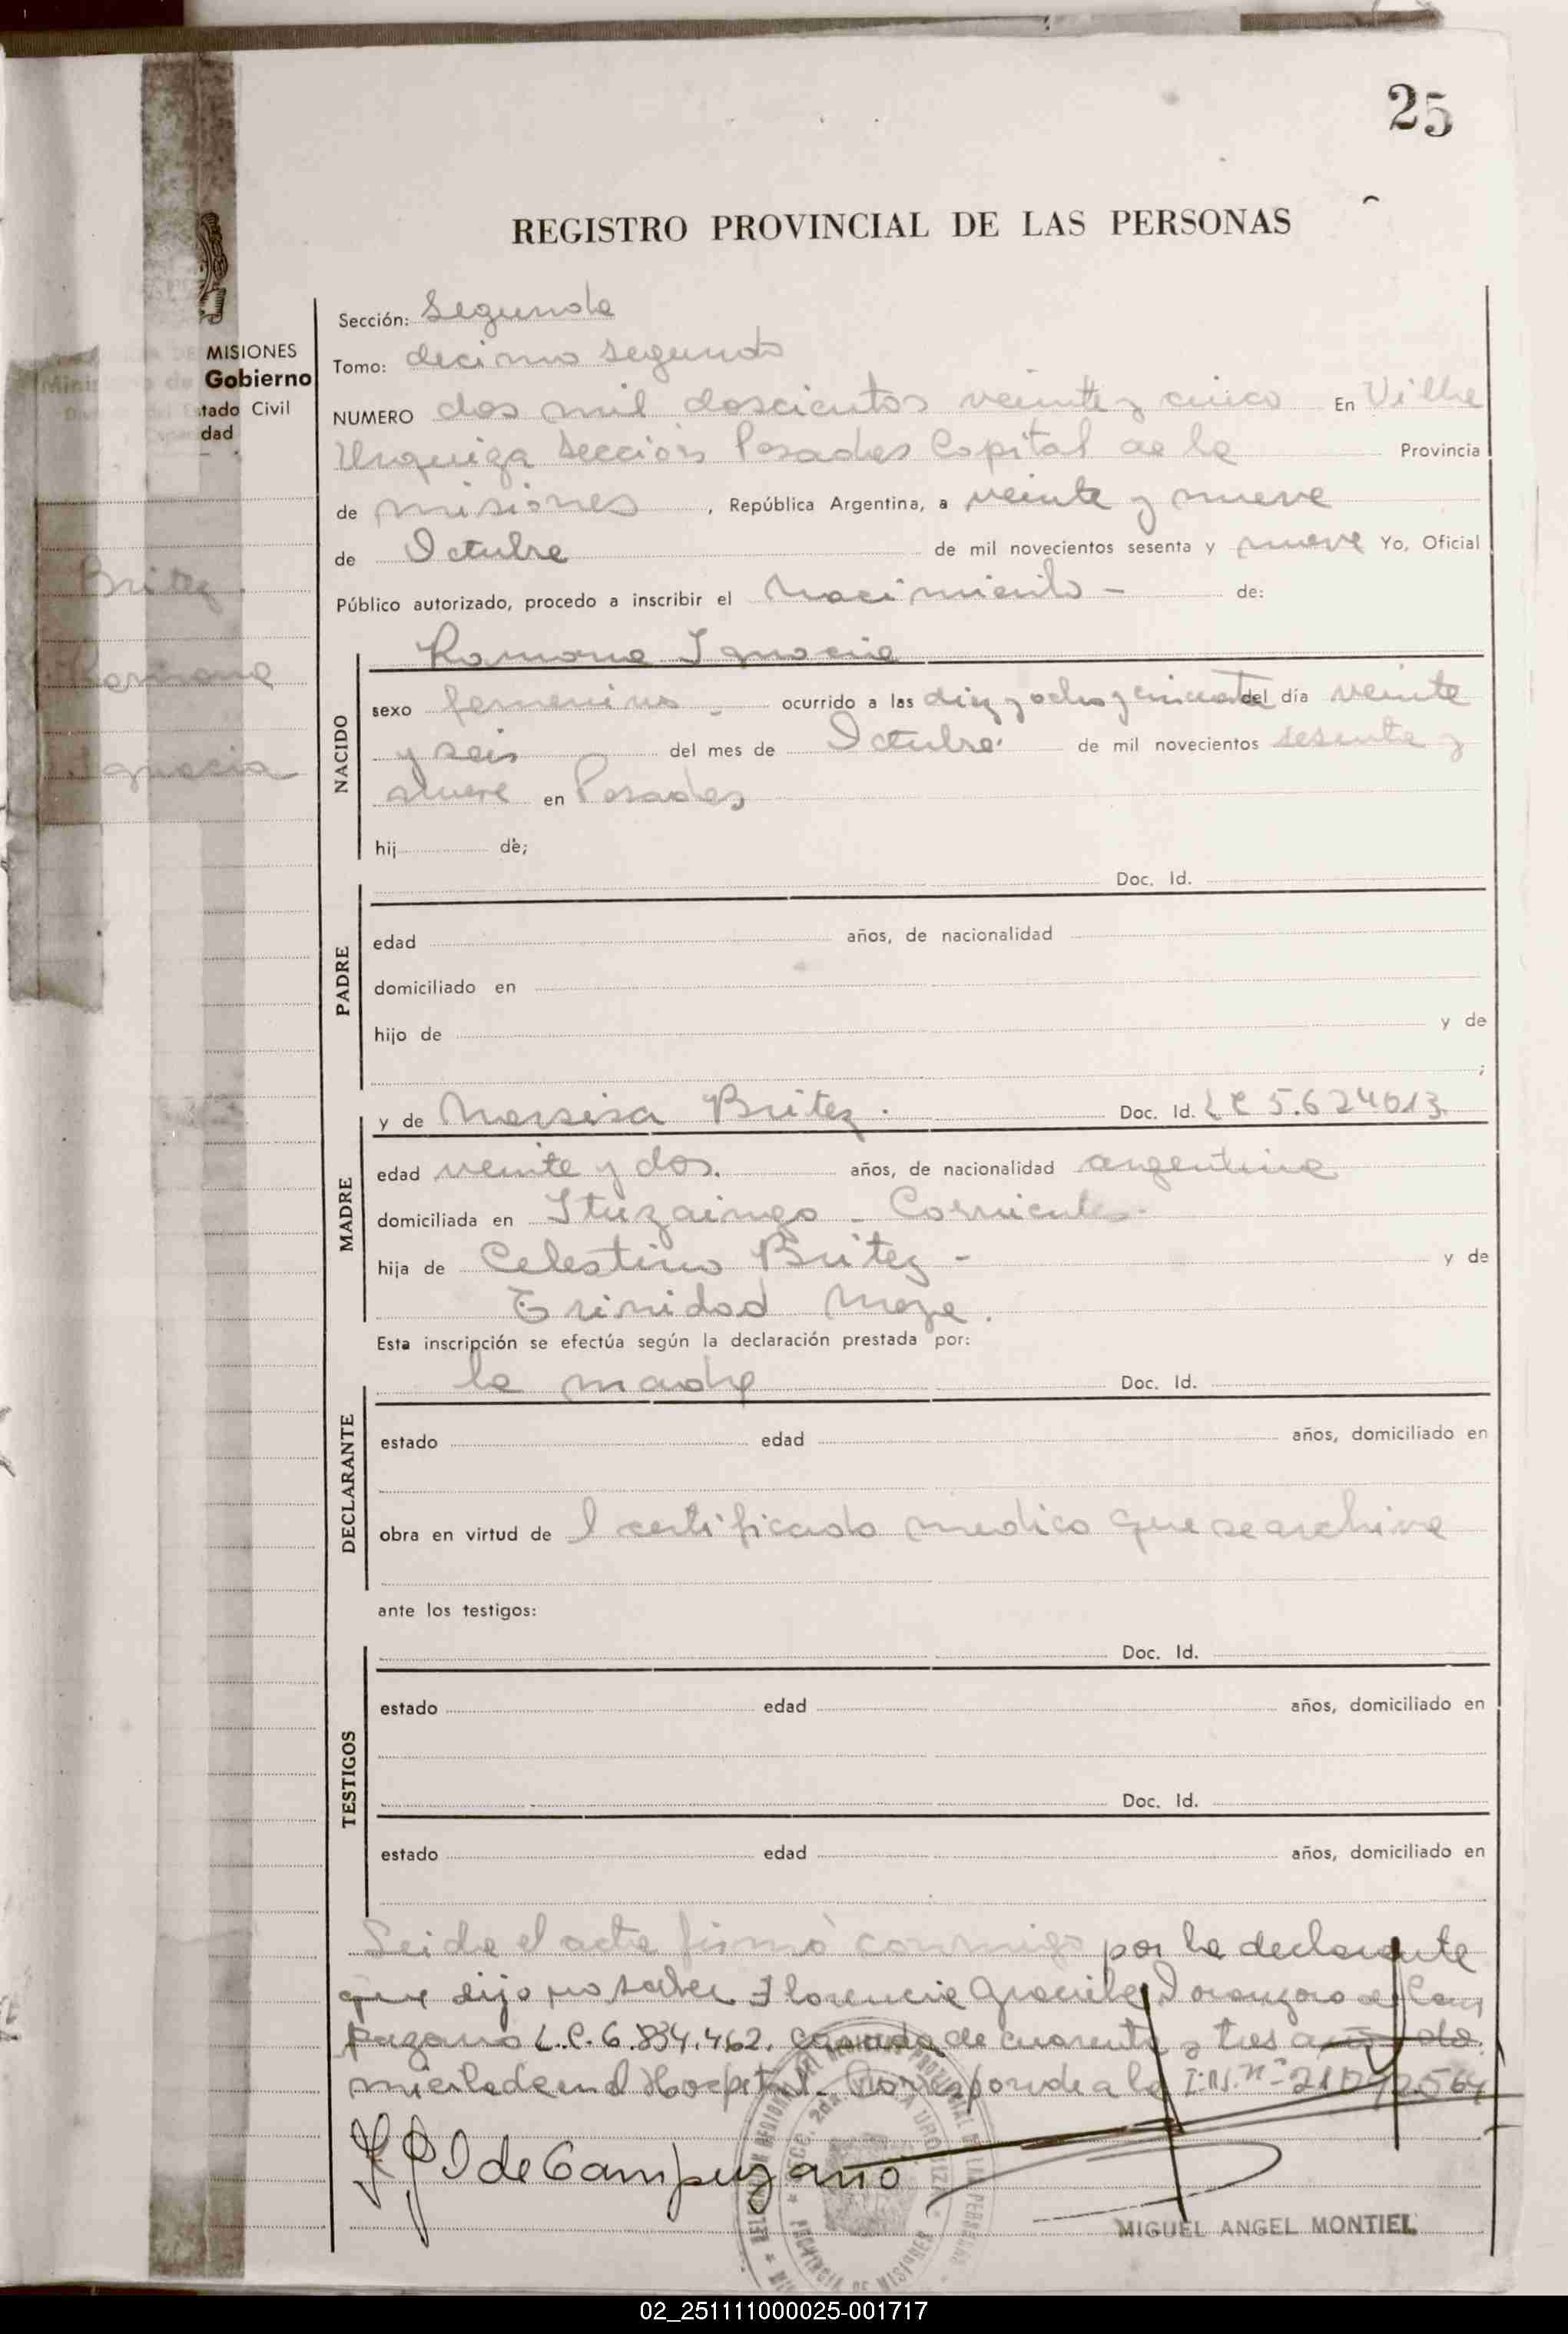 25
REGISTRO PROVINCIAL DE LAS PERSONAS
MISIONES
Gobierno
tado Civil
dad
Britez.
Ramona
Ignacia
Sección: Segunda
Tomo: decimo segundo
NUMERO dos mil doscientos veinte y cinco En Villa
Urquiza Sección Posadas Capital de la Provincia
de misiones, República Argentina, a veinte y nueve
de Octubre de mil novecientos sesenta y nueve Yo, Oficial
Público autorizado, procedo a inscribir el Nacimiento - de:
NACIDO
Ramona Ignacia
sexo femenino - ocurrido a las diez y ocho y cincuenta del día veinte
y seis del mes de Octubre de mil novecientos sesenta y
nueve en Posadas
hij de;
PADRE
Doc. Id.
edad años, de nacionalidad
domiciliado en
hijo de y de
;
MADRE
y de Narsisa Britez. Doc. Id. LC 5.624013
edad veinte y dos. años, de nacionalidad argentina
domiciliada en Ituzaingo - Corrientes.
hija de Celestino Britez - y de
Trinidad Meza.
Esta inscripción se efectúa según la declaración prestada por:
DECLARANTE
la madre Doc. Id.
estado edad años, domiciliado en
obra en virtud de l certificado medico que se archiva
ante los testigos:
TESTIGOS
Doc. Id.
estado edad años, domiciliado en
Doc. Id.
estado edad años, domiciliado en
Leida el acta firmó conmigo por la declarante
que dijo no saber Florencia Graciela de Cam
puzano L.C. 6.834.462. casada de cuarenta y tres años do
miciliada en el Hospital. Corresponde a la I.N. nº
F G I de Campuzano
MIGUEL ANGEL MONTIEL
02_251111000025-001717